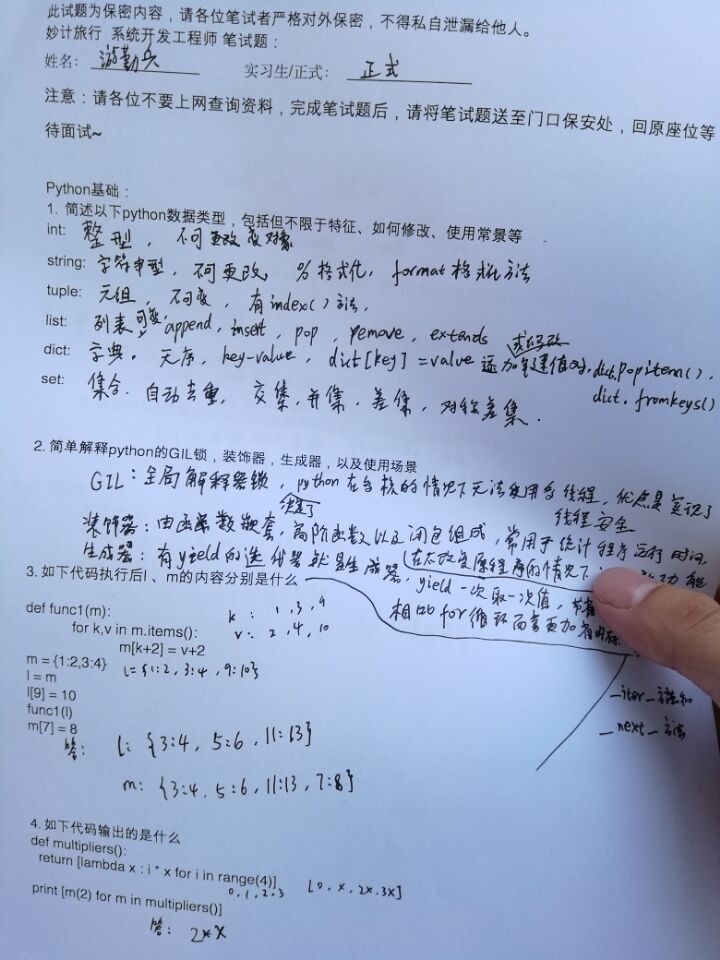 此试题为保密内容，请各位笔试者严格对外保密，不得私自泄漏给他人。
妙计旅行 系统开发工程师 笔试题：
姓名： 游勤兵 实习生/正式： 正式
注意：请各位不要上网查询资料，完成笔试题后，请将笔试题送至门口保安处，回原座位等
待面试~
Python基础：
1. 简述以下python数据类型，包括但不限于特征、如何修改、使用常景等
int: 整型，不可更改变对象
string: 字符串型，不可更改，%格式化，format格式化方法
tuple: 元组，不可变，有index()方法，
list: 列表 可变，append, insert, pop, remove, extends
dict: 字典。无序，key-value，dict[key]=value 添加键值对，或修改 dict.popitem()，
dict.fromkeys()
set: 集合. 自动去重，交集，并集，差集，对称差集.
2. 简单解释python的GIL锁，装饰器，生成器，以及使用场景
GIL：全局解释器锁，python在多核的情况下无法使用多线程，优点是实现了
线程安全
装饰器：由函数嵌套，高阶函数以及闭包组成，常用于统计程序运行时间，
(在不改变原程序的情况下 功能
生成器：有yield的迭代器就是生成器，yield一次取一次值，
相比for循环而言更加省内存
__iter__方法和
__next__方法
3. 如下代码执行后l、m的内容分别是什么
def func1(m):
for k,v in m.items():
m[k+2] = v+2
k: 1, 3, 9
v: 2, 4, 10
m = {1:2,3:4} l={1:2, 3:4, 9:10}
l = m
l[9] = 10
func1(l)
m[7] = 8
答： l: {3:4, 5:6, 11:13}
m: {3:4, 5:6, 11:13, 7:8}
4. 如下代码输出的是什么
def multipliers():
return [lambda x : i * x for i in range(4)]
0, 1, 2, 3 [0, x, 2x, 3x]
print [m(2) for m in multipliers()]
答： 2*x